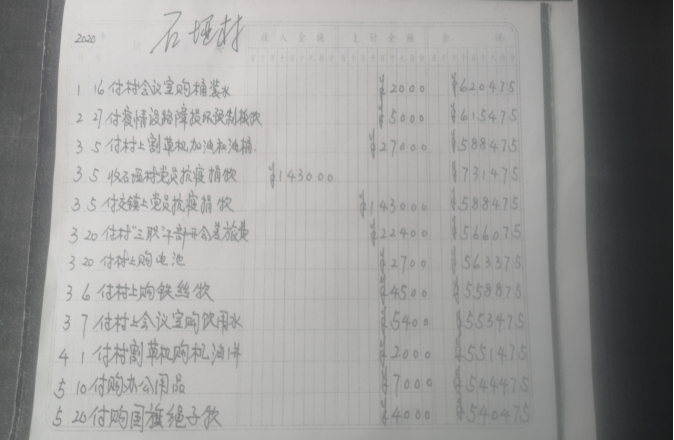 2020年 石堰村 收入金额 支付金额 余 额
1 16 付村会议室购桶装水 ¥2000 ¥620475
2 27 付疫情设路障损坏设制板款 ¥5000 ¥615475
3 5 付村上割草机加油和油桶 ¥27000 ¥588475
3 5 收石堰村党员抗疫捐款 ¥143000 ¥731475
3 5 付交镇上党员抗疫捐款 ¥143000 ¥588475
3 20 付村"三职"干部开会差旅费 ¥22400 ¥566075
3 20 付村上购电池 ¥2700 ¥563375
3 6 付村上购铁丝款 ¥4500 ¥558875
3 7 付村上会议室购饮用水 ¥5400 ¥553475
4 1 付村割草机购机油1并 ¥2000 ¥551475
5 10 付购办公用品 ¥7000 ¥544475
5 20 付购国旗绳子款 ¥4000 ¥540475